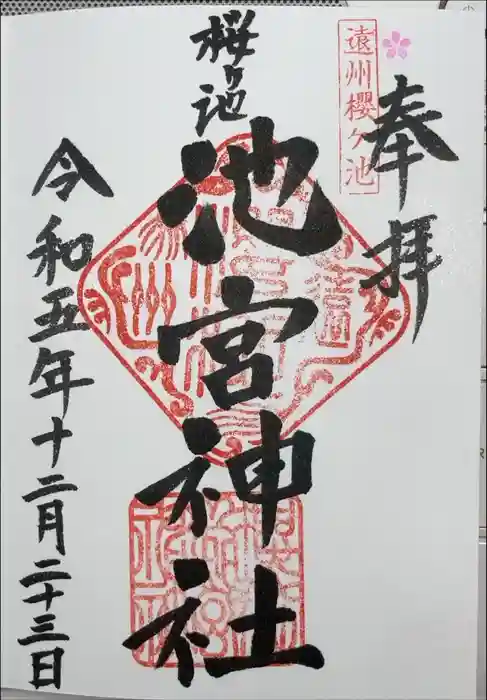 奉拝
遠州櫻ケ池
桜ケ池
池宮神社
令和五年十二月二十三日